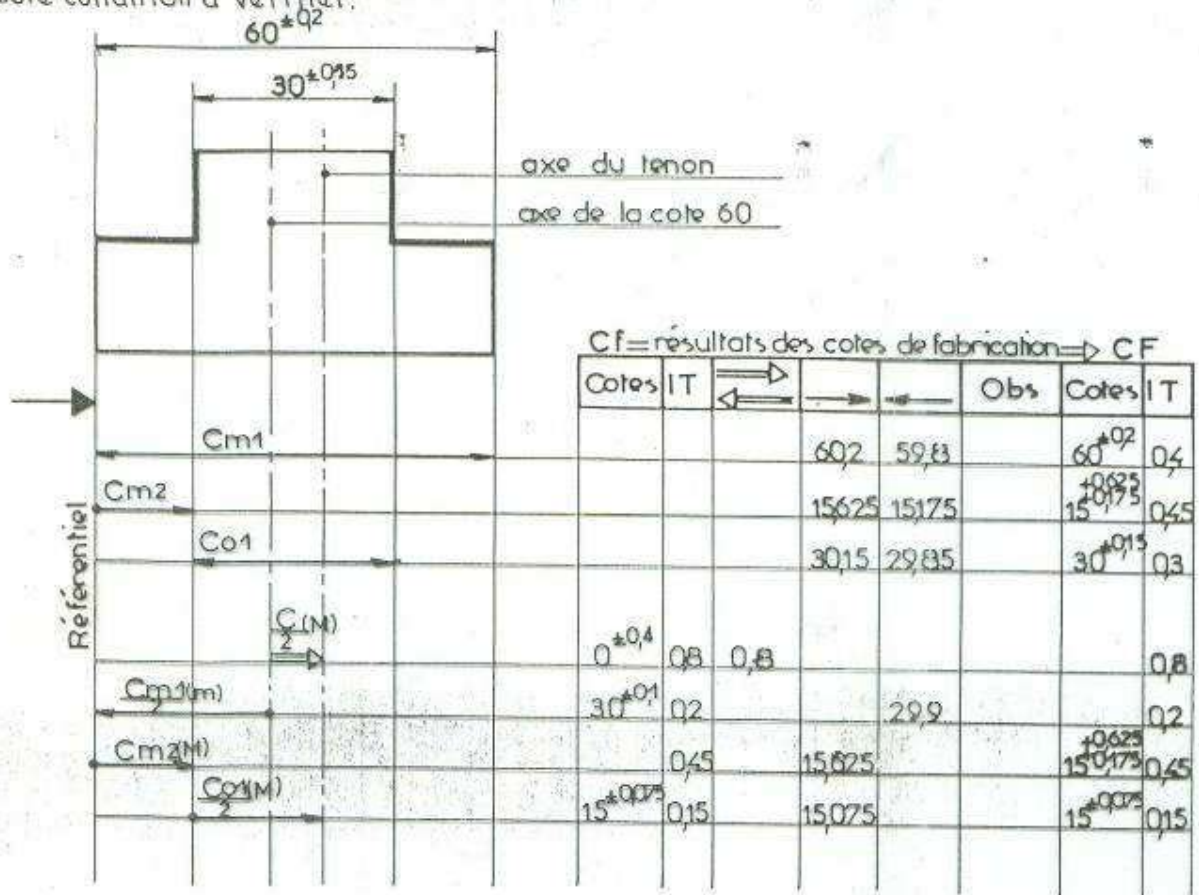 60±0,2
30±0,15
axe du tenon
axe de la cote 60
Cf=résultats des cotes de fabrication=> CF
Cotes IT Obs Cotes IT
Cm1 60,2 59,8 60±0,2 0,4
Cm2 15,625 15,175 15+0,625 +0,175 0,45
Co1 30,15 29,85 30±0,15 0,3
Référentiel
C/2(M) 0±0,4 0,8 0,8 0,8
Cm1(m)/2 30±0,1 0,2 29,9 0,2
Cm2(M) 0,45 15,625 15+0,625 +0,175 0,45
Co1(M)/2 15±0,075 0,15 15,075 15±0,075 0,15